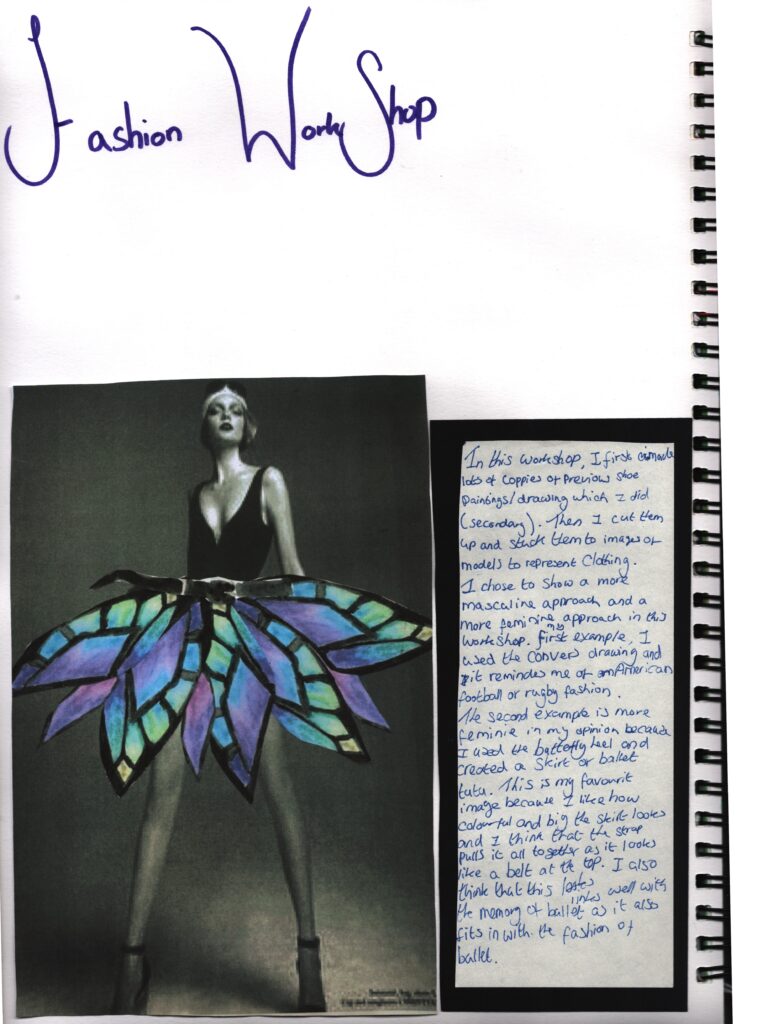 Fashion WorkShop
In this workshop, I first made
lots of Coppies of Previow Shoe
Paintings/drawing which I did
(secondary). Then I cut them
up and stuck them to images of
models to represent Clothing.
I chose to show a more
masculine approach and a
more feminine approach in this
workshop. my first example, I
used the Convers drawing and
it reminds me of American
football or rugby fashion.
The second example is more
feminie in my opinion because
I used the butterfly heel and
created a Skirt or ballet
tutu. This is my favourit
image because I like how
colourful and big the skirt looks
and I think that the strap
pulls it all together as it looks
like a belt at the top. I also
think that this links well with
the memory of ballet as it also
fits in with the fashion of
ballet.